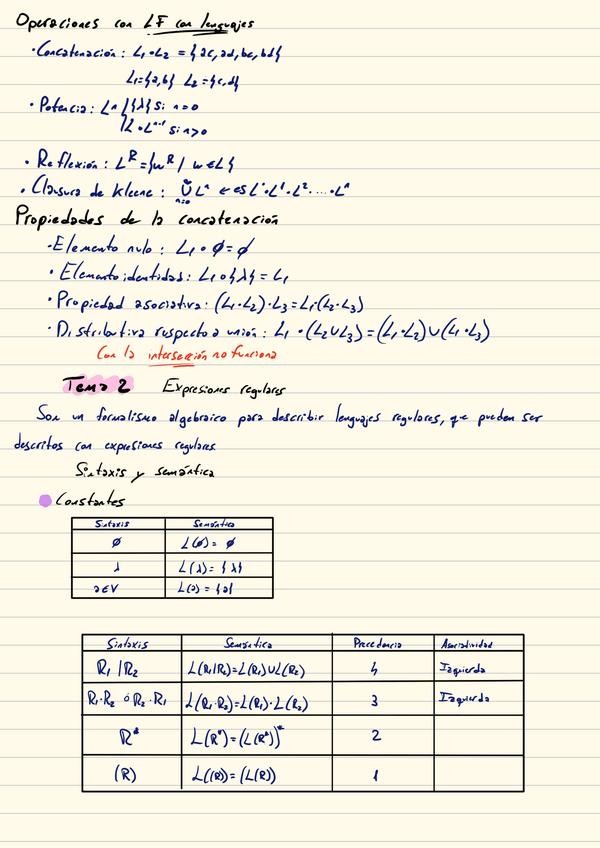 Operaciones con LF con lenguajes
· Concatenación: L₁·L₂ = {ac, ad, bc, bd}
L₁={a,b} L₂={c,d}
· Potencia: Lⁿ {{λ} si n=0
{L·Lⁿ⁻¹ si n>0
· Reflexión: L^R = {w^R / w∈L}
· Clausura de Kleene: ∞∪n=0 Lⁿ ← es L⁰·L¹·L²·...·Lⁿ
Propiedades de la concatenación
· Elemento nulo: L₁·∅=∅
· Elemento identidad: L₁·{λ} = L₁
· Propiedad asociativa: (L₁·L₂)·L₃=L₁·(L₂·L₃)
· Distributiva respecto a unión: L₁·(L₂∪L₃)=(L₁·L₂)∪(L₁·L₃)
Con la intersección no funciona
Tema 2 Expresiones regulares
Son un formalismo algebraico para describir lenguajes regulares, que pueden ser
descritos con expresiones regulares
Sintaxis y semántica
Constantes
Sintaxis Semántica
∅ L(∅) = ∅
λ L(λ) = {λ}
a∈V L(a) = {a}
Sintaxis Semántica Precedencia Asociatividad
R₁ | R₂ L(R₁|R₂)=L(R₁)∪L(R₂) 4 Izquierda
R₁·R₂ ó R₂·R₁ L(R₁·R₂)=L(R₁)·L(R₂) 3 Izquierda
R* L(R*)=(L(R*))* 2
(R) L((R))=(L(R)) 1